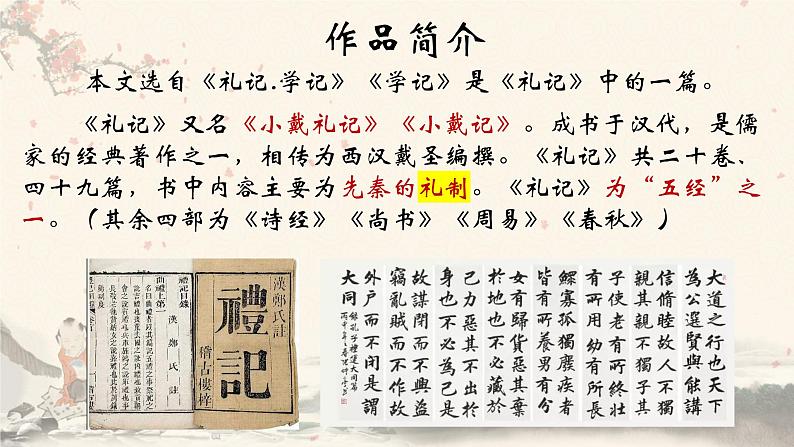 作品简介
本文选自《礼记.学记》《学记》是《礼记》中的一篇。
《礼记》又名《小戴礼记》《小戴记》。成书于汉代，是儒
家的经典著作之一，相传为西汉戴圣编撰。《礼记》共二十卷、
四十九篇，书中内容主要为先秦的礼制。《礼记》为“五经”之
一。（其余四部为《诗经》《尚书》《周易》《春秋》）
漢鄭氏註
禮記
稽古樓梓
禮記目錄
漢鄭氏註
曲禮上第一
大道之行也天下
為公選賢與能講
信脩睦故人不獨
親其親不獨子其
子使老有所終壯
有所用幼有所長
鰥寡孤獨廢疾者
皆有所養男有分
女有歸貨惡其棄
於地也不必藏於
己力惡其不出於
身也不必為己是
故謀閉而不興盜
竊亂賊而不作故
外戶而不閉是謂
大同